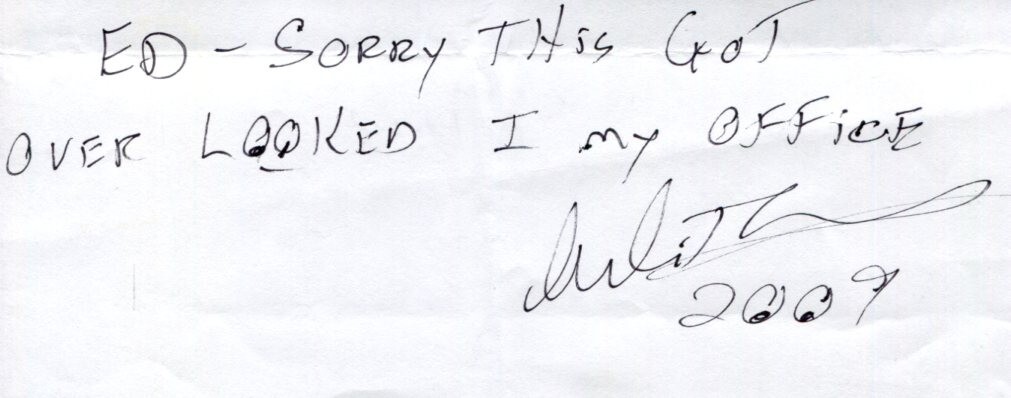 ED - SORRY THiS GOT
OVER LOOKED I my OFFiCE
2009